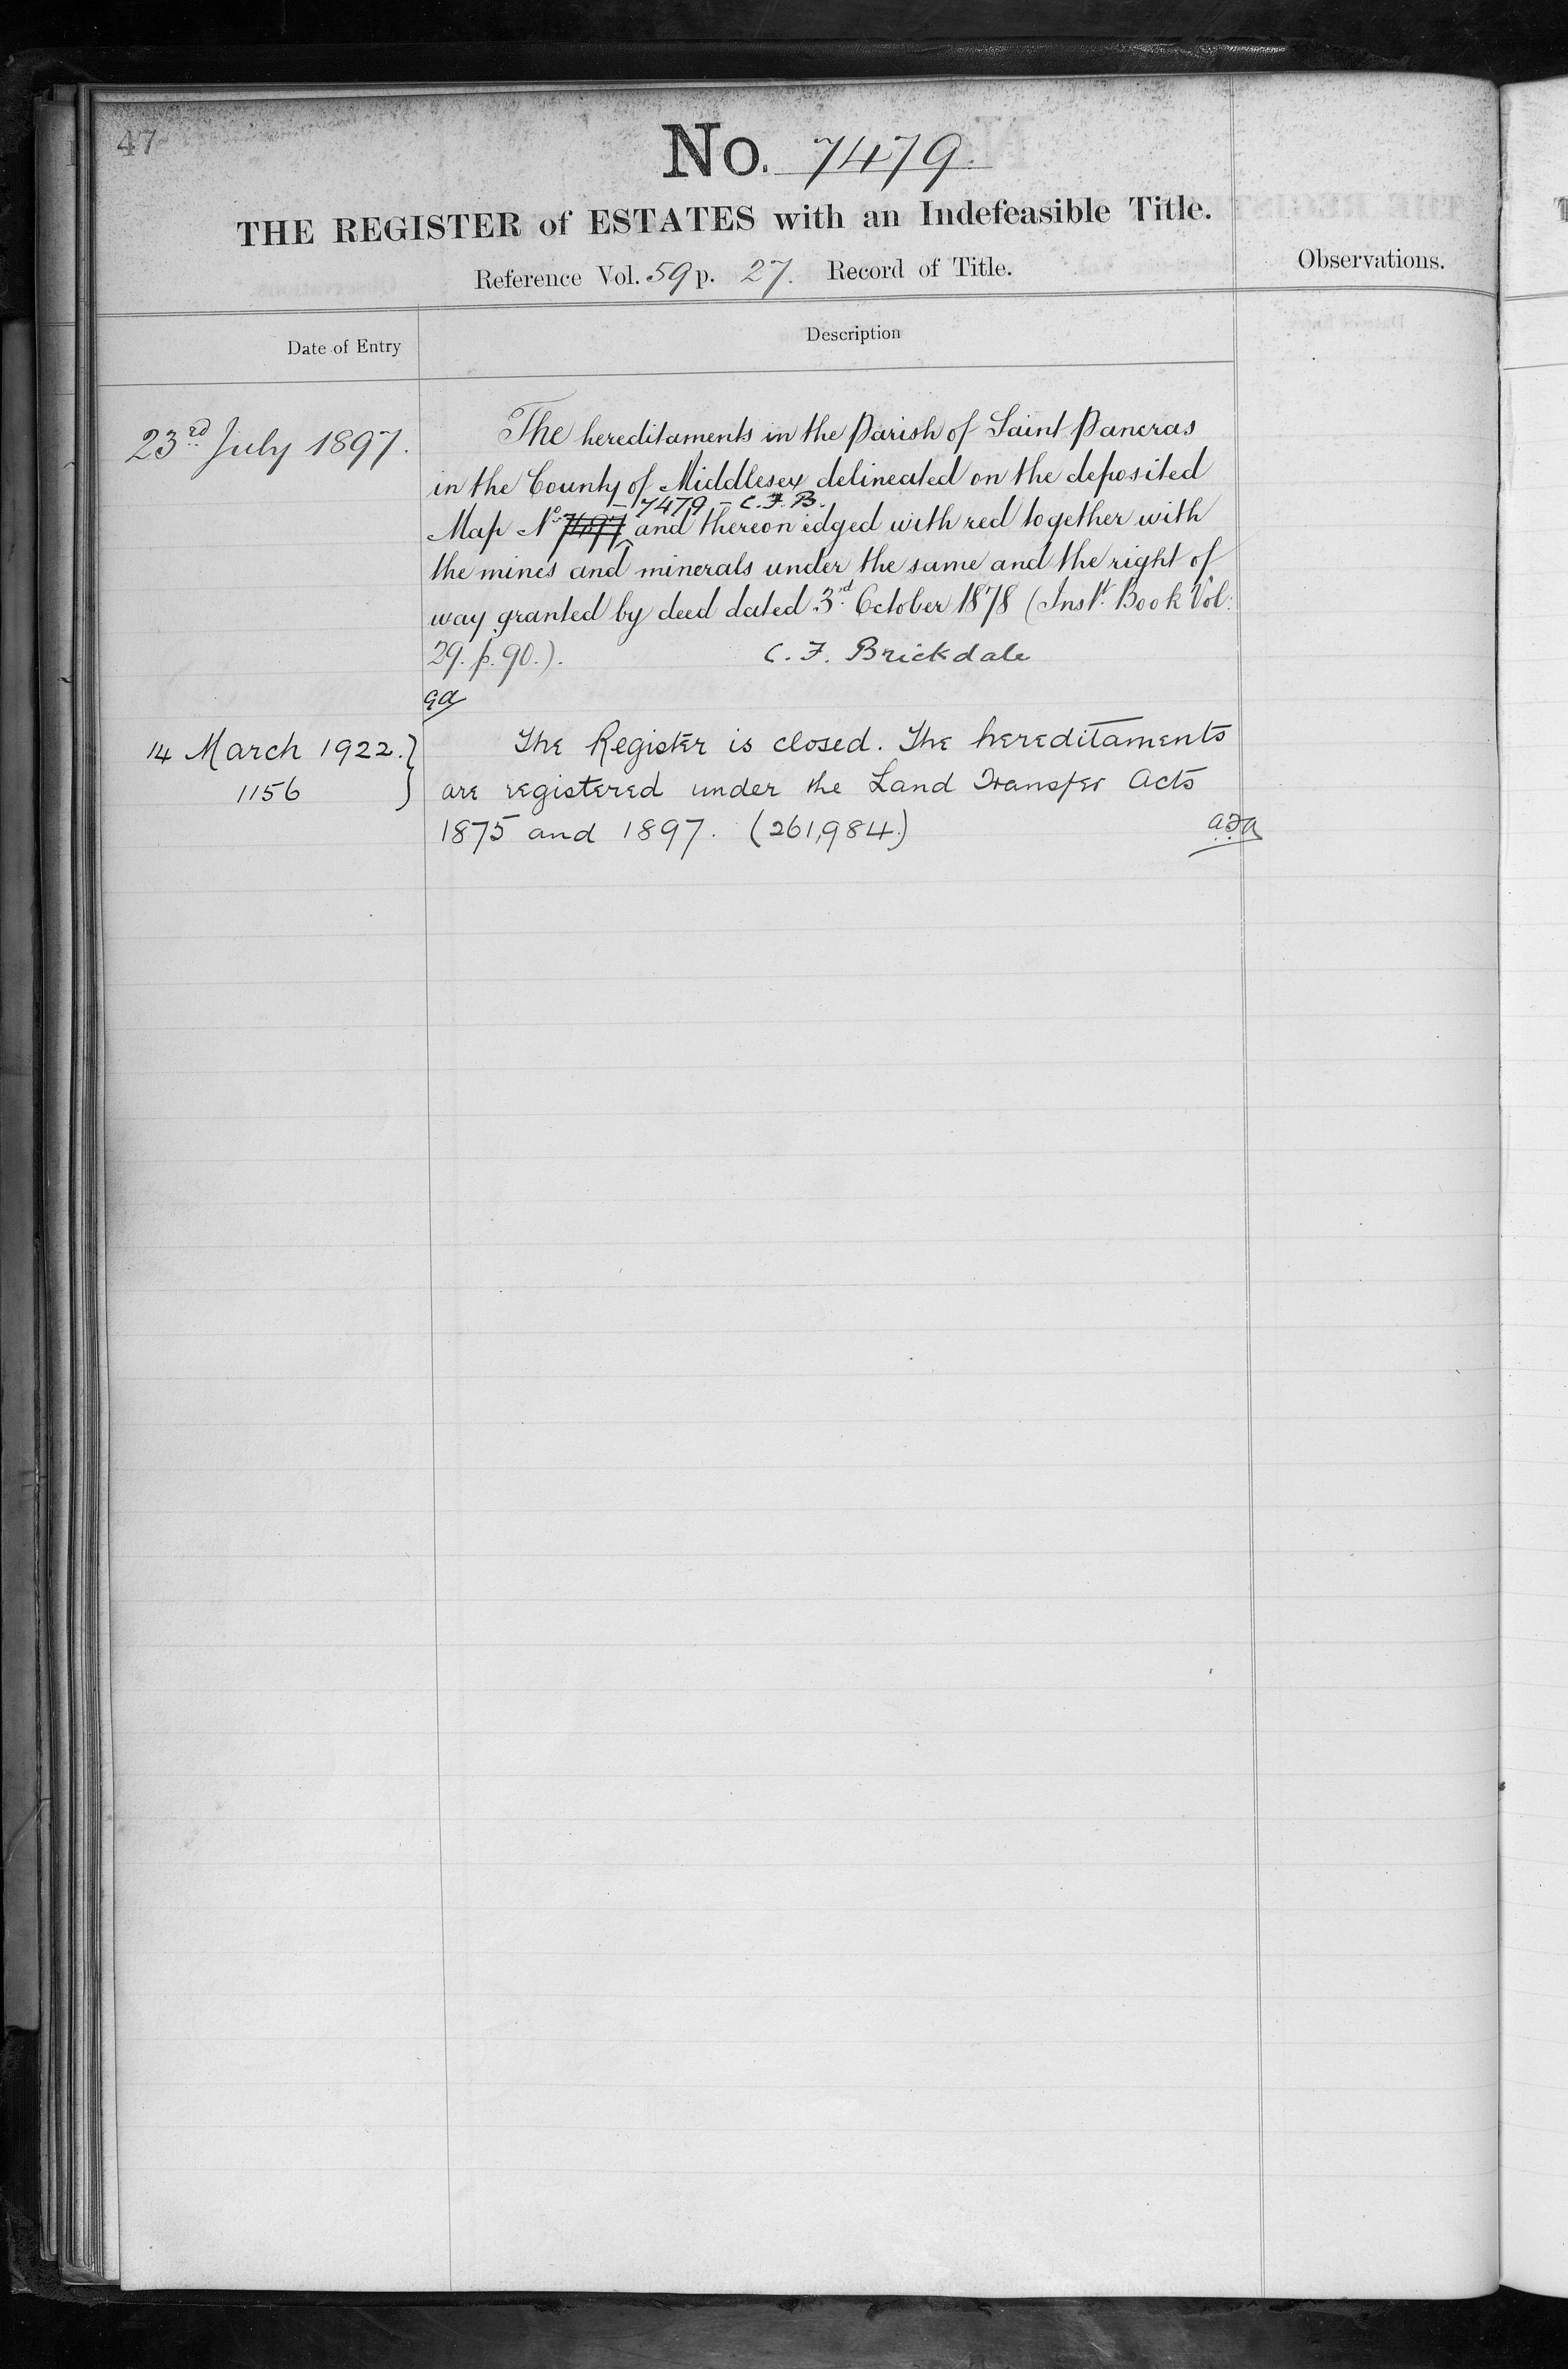 47
No. 7479.
THE REGISTER of ESTATES with an Indefeasible Title.
Reference Vol. 59 p. 27. Record of Title.
Observations.
Date of Entry
Description
23rd July 1897.
The hereditaments in the Parish of Saint Pancras
in the County of Middlesex delineated on the deposited
– 7479 – C. F. B.
Map No and thereon edged with red together with
the mines and minerals under the same and the right of
way granted by deed dated 3rd October 1878 (Inst. Book Vol:
29. p. 90.).
C. F. Brickdale
14 March 1922.}
1156
The Register is closed. The hereditaments
are registered under the Land Transfer Acts
1875 and 1897. (261,984.)